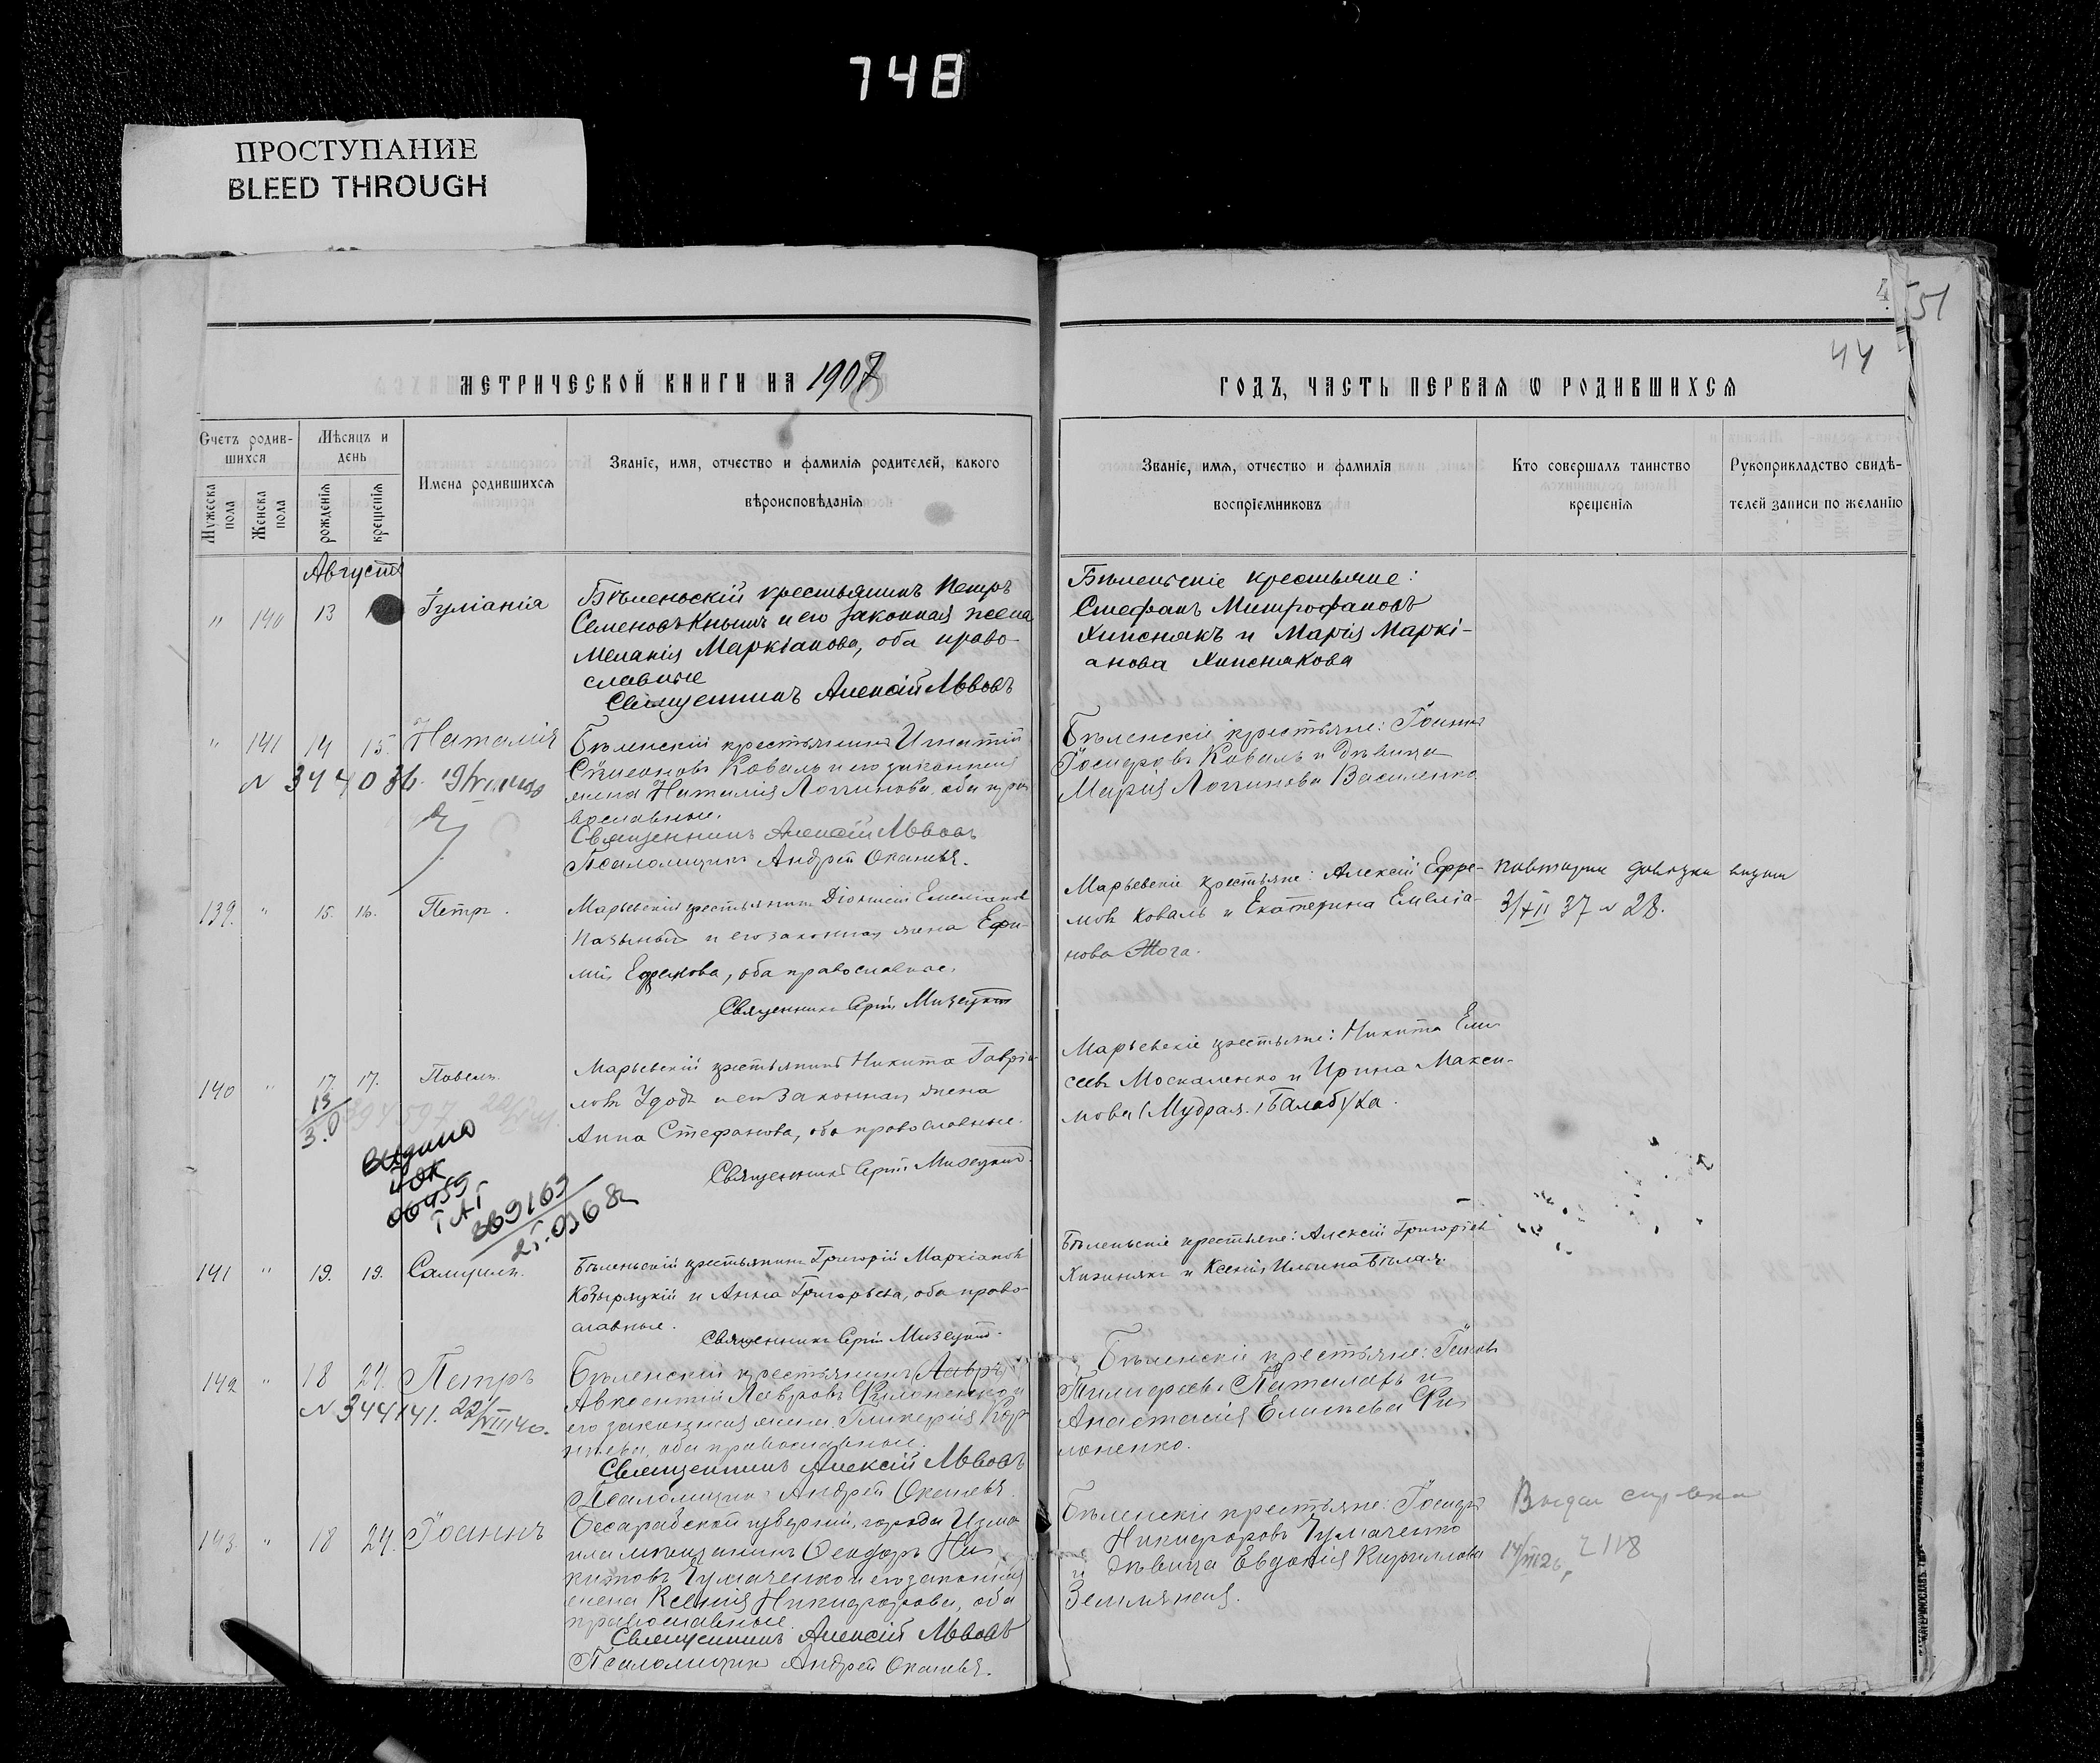 748
ПРОСТУПАНИЕ
BLEED THROUGH
51
44
МЕТРИЧЕСКОЙ КНИГИ НА 1907
ГОДЪ, ЧАСТЬ ПЕРВАЯ Ѡ РОДИВШИХСЯ
Счетъ родив-
шихся
Мѣсяцъ и
день
Мужеска
пола
Женска
пола
рожденія
крещенія
Имена родившихся
Званіе, имя, отчество и фамилія родителей, какого
вѣроисповѣданія
Званіе, имя, отчество и фамилія
воспріемниковъ
Кто совершалъ таинство
крещенія
Рукоприкладство свидѣ-
телей записи по желанію
Августъ
" 140 13 Іуліанія
Бѣленьскій крестьянинъ Петръ
Семеновъ Кнышъ и его законная жена
Меланія Маркіанова, оба право-
славные
Священникъ Алексій Львовъ
Бѣленьскіе крестьяне:
Стефанъ Митрофановъ
Хижнякъ и Марія Маркі-
анова Хижнякова
" 141 14 15. Наталія
N 344036.
Бѣленскій крестьянинъ Игнатій
Сѵмеоновъ Коваль и его законная
жена Наталія Логгинова, оба пра-
вославные.
Священникъ Алексій Львовъ
Псаломщикъ Андрей
Бѣленскіе крестьяне: Іоаннъ
Коваль и дѣвица
Марія Логгинова Василенко
139. " 15. 16. Петръ.
Марьевскій крестьянинъ Діонисій Емеліановъ
и его законная жена Ефи-
мія Ефремова, оба православные.
Священникъ Сергій Мизецкій
Марьевскіе крестьяне: Алексій Ефре-
мовъ Коваль и Екатерина Емеліа-
нова
3/XII 37 N 28.
140 " 17. 17. Павелъ.
Марьевскій крестьянинъ Никита Гавріи-
ловъ Удодъ и его законная жена
Анна Стефанова, оба православные.
Священникъ Сергій Мизецкій.
Марьевскіе крестьяне: Никита Ели-
сеевъ Москаленко и Ирина Макси-
мова (Мудрая.) Балабуха.
13
видано
369169
141 " 19. 19. Самуилъ.
Бѣленьскій крестьянинъ Григорій Маркіановъ
Козырицкій и Анна Григорьева, оба право-
славные.
Священникъ Сергій Мизецкій.
Бѣленьскіе крестьяне: Алексій Григорьевъ
Хижнякъ и Ксенія Ильина Бѣлая.
142 " 18 24. Петръ
N 344141. 22/VIII 40.
Бѣленскій крестьянинъ Лавръ
Авксентій Лавровъ Филоненко и
его законная жена Гликерія Кор-
нѣева, оба православные.
Священникъ Алексій Львовъ
Псаломщикъ Андрей
Бѣленскіе крестьяне:
и
Анастасія Фи-
лоненко.
143. " 18 24. Іоаннъ
Бесарабской губерніи, города Изма-
ила мѣщанинъ Ѳеодоръ Ни-
китовъ Чумаченко и его законная
жена Ксенія Никифорова, оба
православные.
Священникъ Алексій Львовъ
Псаломщикъ Андрей
Бѣленскіе крестьяне:
Никифоровъ Чумаченко
и дѣвица Евдокія Кириллова
Земляная.